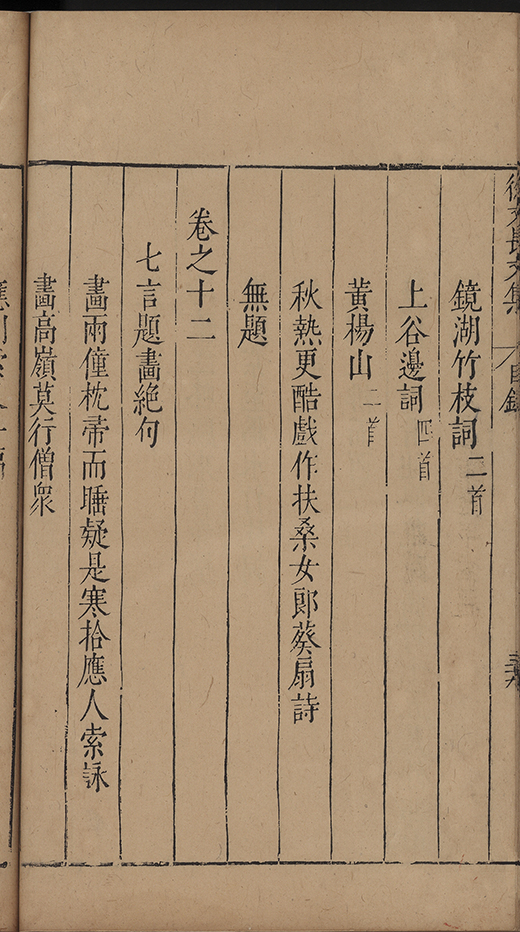 徐文長文集 目錄
鏡湖竹枝詞二首
上谷邊詞四首
黃楊山二首
秋熱更酷戲作扶桑女郎葵扇詩
無題
卷之十二
七言題畫絕句
畫兩僮枕帚而睡疑是寒拾應人索詠
畫高嶺莫行僧衆